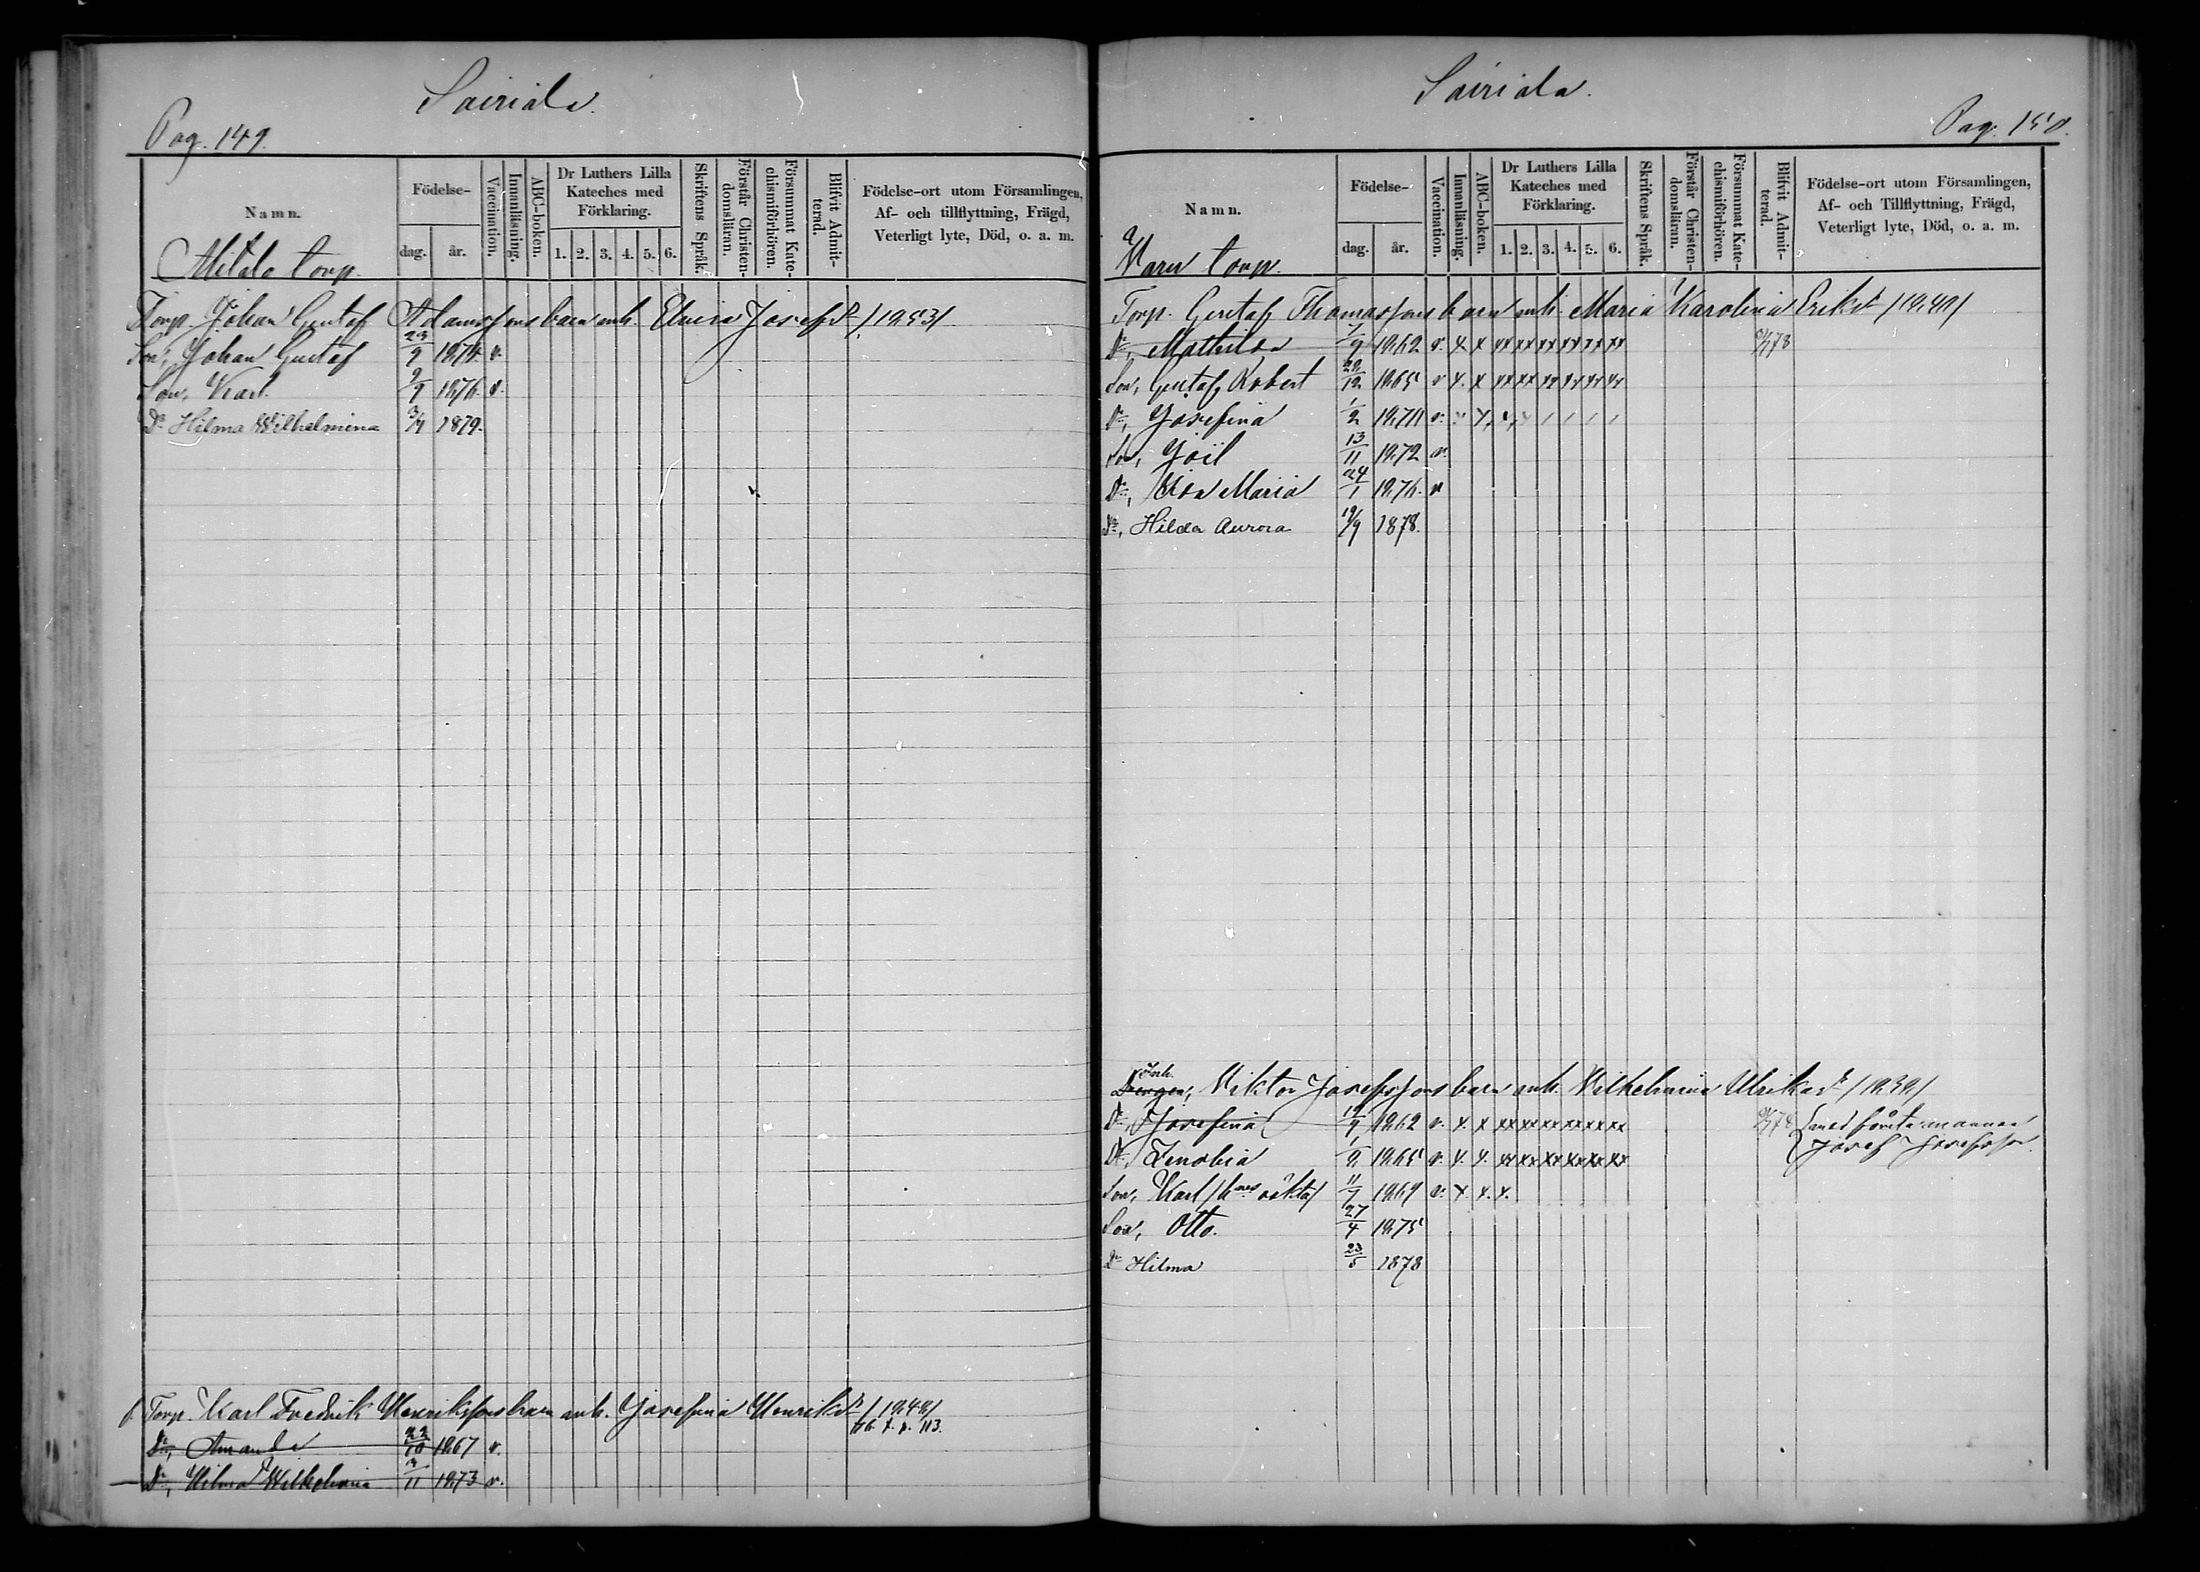 Sairiala.
Pag. 149.
Namn.
Födelse-
dag. år.
Vaccination.
Innanläsning.
ABC-boken.
Dr Luthers Lilla
Kateches med
Förklaring.
1. 2. 3. 4. 5. 6.
Skriftens Språk.
Förstår Christen-
domsläran.
Försummat Kate-
chismiförhören.
Blifvit Admit-
terad.
Födelse-ort utom Församlingen,
Af- och tillflyttning, Frägd,
Veterligt lyte, Död, o. a. m.
Mitala torp.
Torp. Johan Gustaf Adamssons barn m. h. Elvira Josefsdr /1853/
Son, Johan Gustaf 23/9 1874 v.
Son, Karl 9/9 1876 v.
Dr Hilma Wilhelmina 3/4 1879.
Torp. Karl Fredrik Henrikssons barn m. h. Josefina Henriksdr /1848/
Dr, Amanda 22/10 1867 v.
Dr, Hilma Wilhelmina 3/11 1873 v.
Sairiala.
Pag. 150.
Namn.
Födelse-
dag. år.
Vaccination.
Innanläsning.
ABC-boken.
Dr Luthers Lilla
Kateches med
Förklaring.
1. 2. 3. 4. 5. 6.
Skriftens Språk.
Förstår Christen-
domsläran.
Försummat Kate-
chismiförhören.
Blifvit Admit-
terad.
Födelse-ort utom Församlingen,
Af- och Tillflyttning, Frägd,
Veterligt lyte, Död, o. a. m.
torp.
Torp. Gustaf Thomassons barn m. h. Maria Karolina Eriksdr /1841/
Dr, Mathilda 7/9 1862 v. x x xx xx xx xx xx xx
Son, Gustaf Robert 29/12 1865 v x. x xx xx xx xx xx xx
Dr, Josefina 1/2 1870 v.
Son, Joël 13/11 1872 v.
Dr, Ida Maria 24/1 1876 v
Dr, Hilda Aurora 19/9 1878.
Inh.
Drengen, Viktor Josefssons barn m. h. Wilhelmina Ulriksdr /1839/
Dr, Josefina 19/9 1862 v. x x xx xx xx xx xx xx med förra mannen
Dr, Zenobia 1865 v. x. x. xx xx xx xx xx xx Josef Josefsson.
Son, Karl 11/7 1869 v. x x. x.
Son, Otto. 27/4 1875
Dr Hilma 23/5 1878